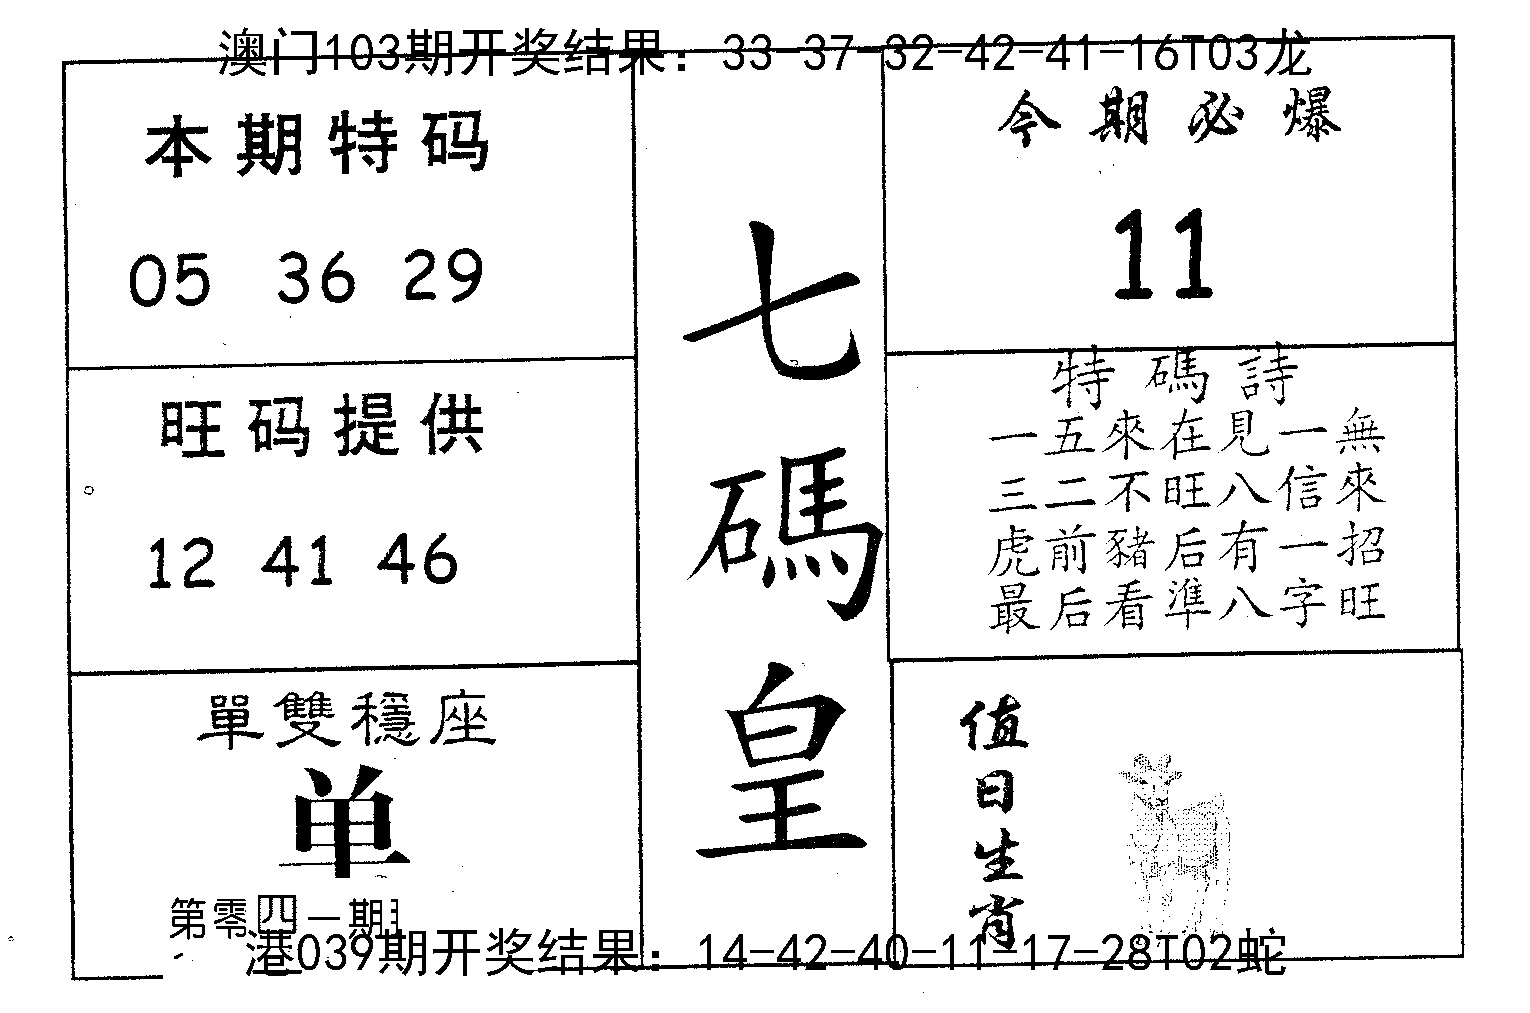 澳门103期开奖结果：33-37-32-42-41-16T03龙
本期特码
05 36 29
旺码提供
12 41 46
單雙穩座
单
第零四一期
七碼皇
今期必爆
11
特碼詩
一五來在見一無
三二不旺八信來
虎前豬后有一招
最后看準八字旺
值日生肖
港039期开奖结果：14-42-40-11-17-28T02蛇